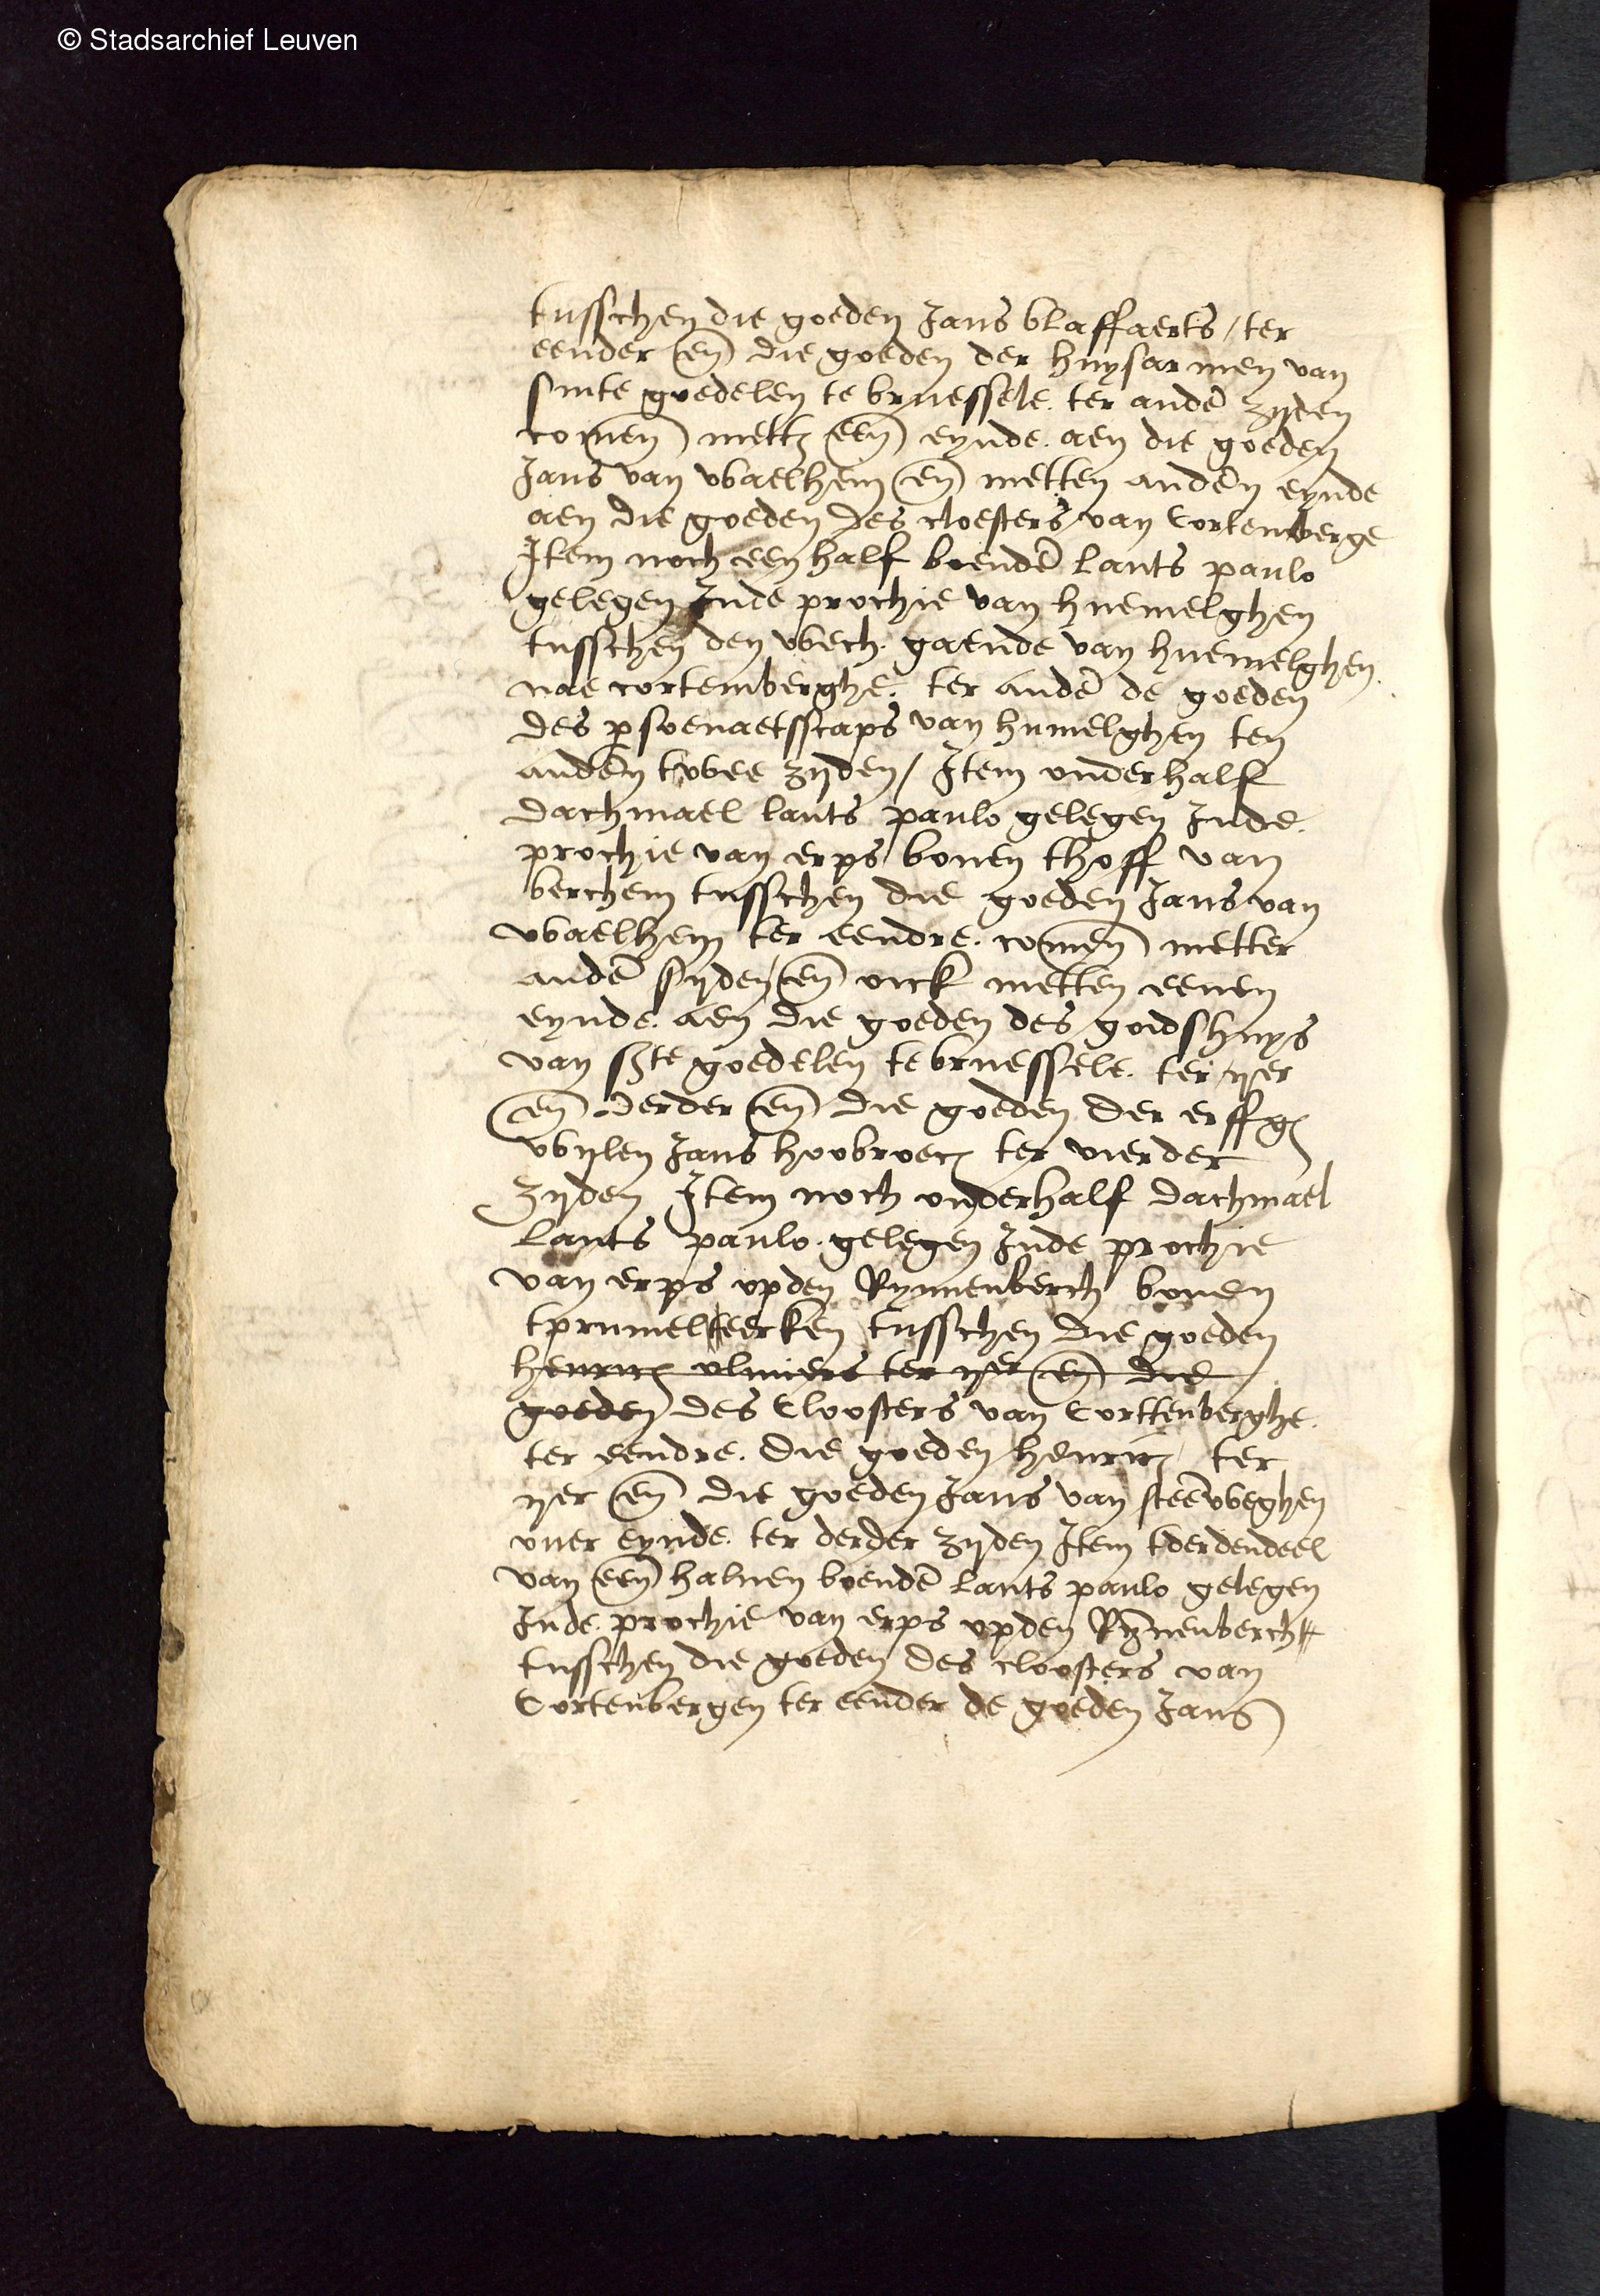 © Stadsarchief Leuven
tusschen die goeden Jans blaffaerts / ter
eender en̄ die goeden der huysarmen van
sinte goedelen te bruessele. ter ander̄ zijden
comen̄ mett₃ een̄ eynde. aen die goeden
Jans van waelhem en̄ metten andern̄ eynde
aen die goeden des cloesters van Cortemberge
Item noch een half boender̄ lants paulo
gelegen Inde prochie van huemelghen
tusschen den wech. gaende van huemelghen.
nae cortemberghe. ter ander̄ de goeden
des psoenaetscaps van humelghen ten
andern̄ twee zijden / Item onderhalf
dachmael lants paulo gelegen Inde.
prochie van erps boven thoff van
berchem tusschen die goeden Jans van
waelhem ter eendre. comen̄ metter
ander̄ sijden / en̄ oick metten eenen
eynde. aen die goeden des goidshuys
van ste goedelen te bruessele. ter ijer
en̄ derder en̄ die goeden der erffg
wijlen Jans hoobroec ter vierder
zijden Item noch onderhalf dachmael
lants paulo. gelegen Inde prochie
van erps opden Rynnenberch boven
tprumelkerken tusschen die goeden
henric oliviers ter ijer en̄ die
goeden des Cloosters van Corttenberghe.
ter eendre. die goeden henric ter
ijer en̄ die goeden Jans van steēweghen
over eynde. ter derder zijden Item tderdendeel
van een̄ halven boender̄ lants paulo gelegen
Inde. prochie van erps opden Rȳnenberch
tusschen die goeden des cloosters van
Cortenbergen ter eender de goeden Jans